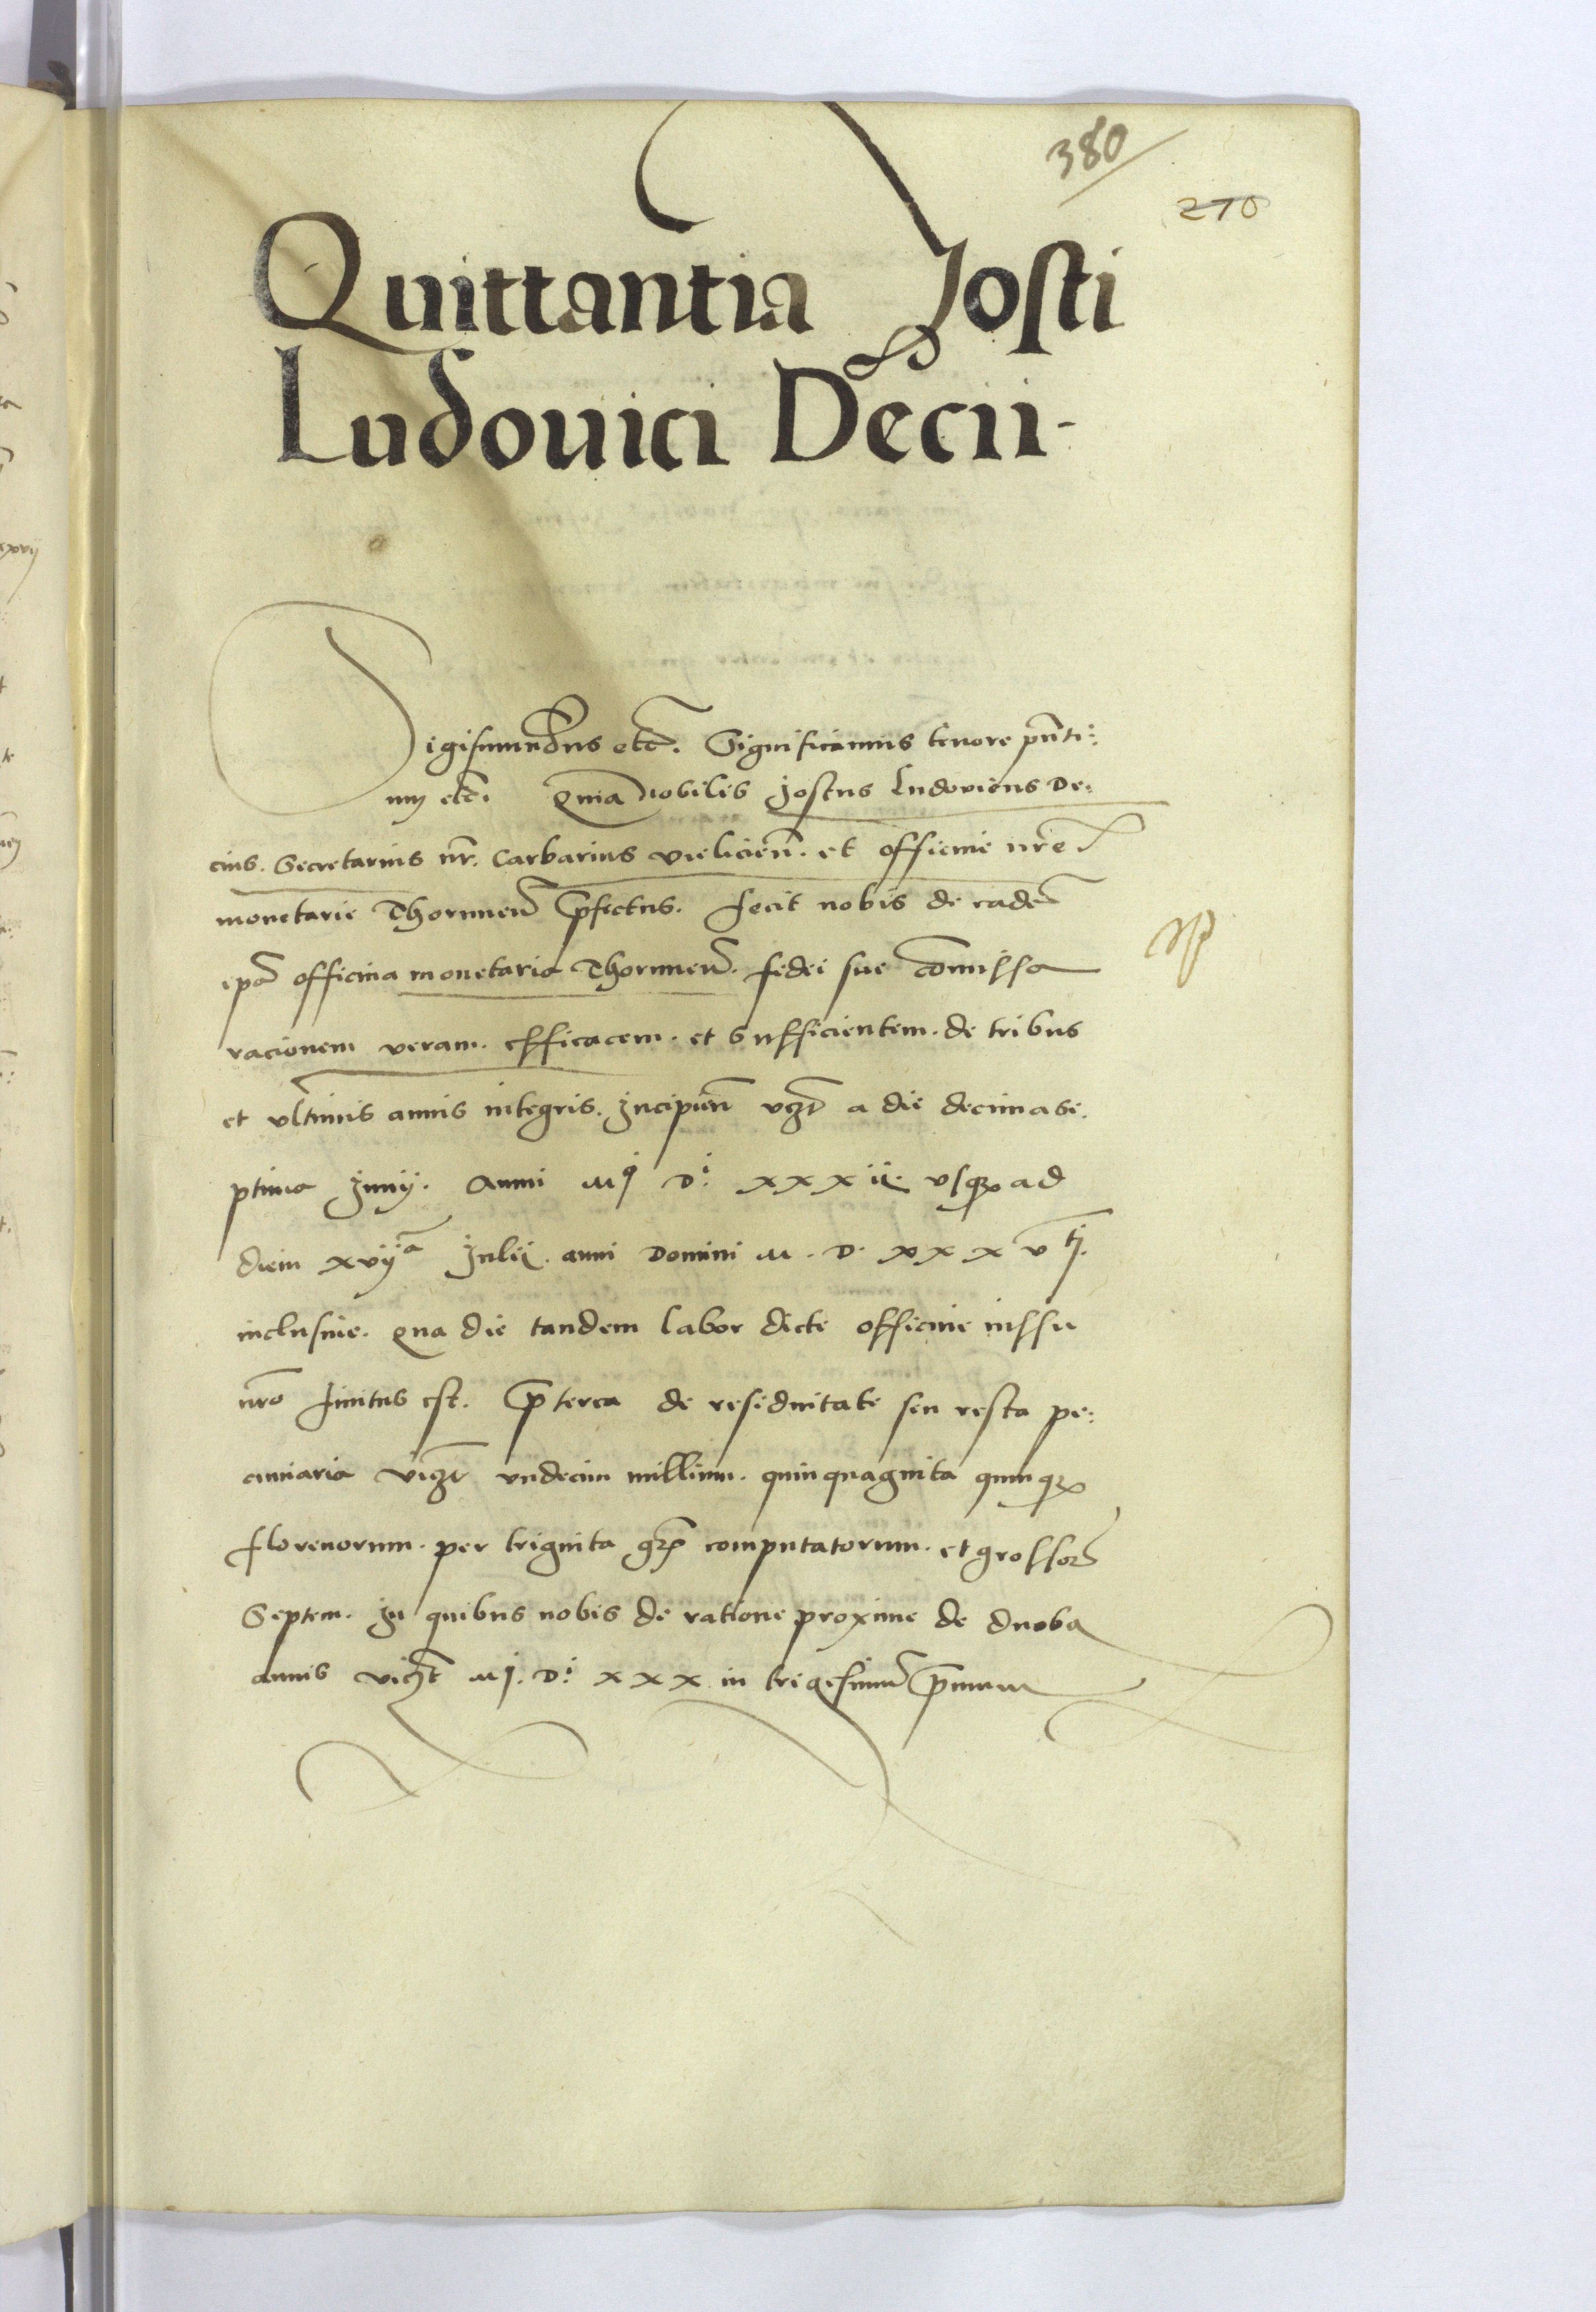 380
210
Quittantia Josti
Ludouici Decii-
Sigismundus etc. Significamus tenore pnti:
um etc. Quia nobilis Jostus Ludovicus De:
cius. Secretarius nr. Carbarius vielicien. et officine nre
monetarie Thorunen pfectus. fecit nobis de eadem
ipa officina monetaria Thorunen. fidei sue comissa
racionem veram. efficacem. et sufficientem. de tribus
et vltimis annis integris. Incipien vczt a die decimase:
ptima Junij. Anni Mj Di xxxij. vsq ad
diem xvija Julij. anni Domini M. D. xxx vti.
inclusiue. qua die tandem labor dicte officine iussu
nro finitus est. pterea de residuitate seu resta pe:
cuniaria viczt vndecim millium. quinquaginta quinq
florenorum. per triginta gr computatorum. et grossor
Septem. In quibus nobis de ratione proxime de duobus
annis viczt Mj. Di xxx in trigesimum pmum